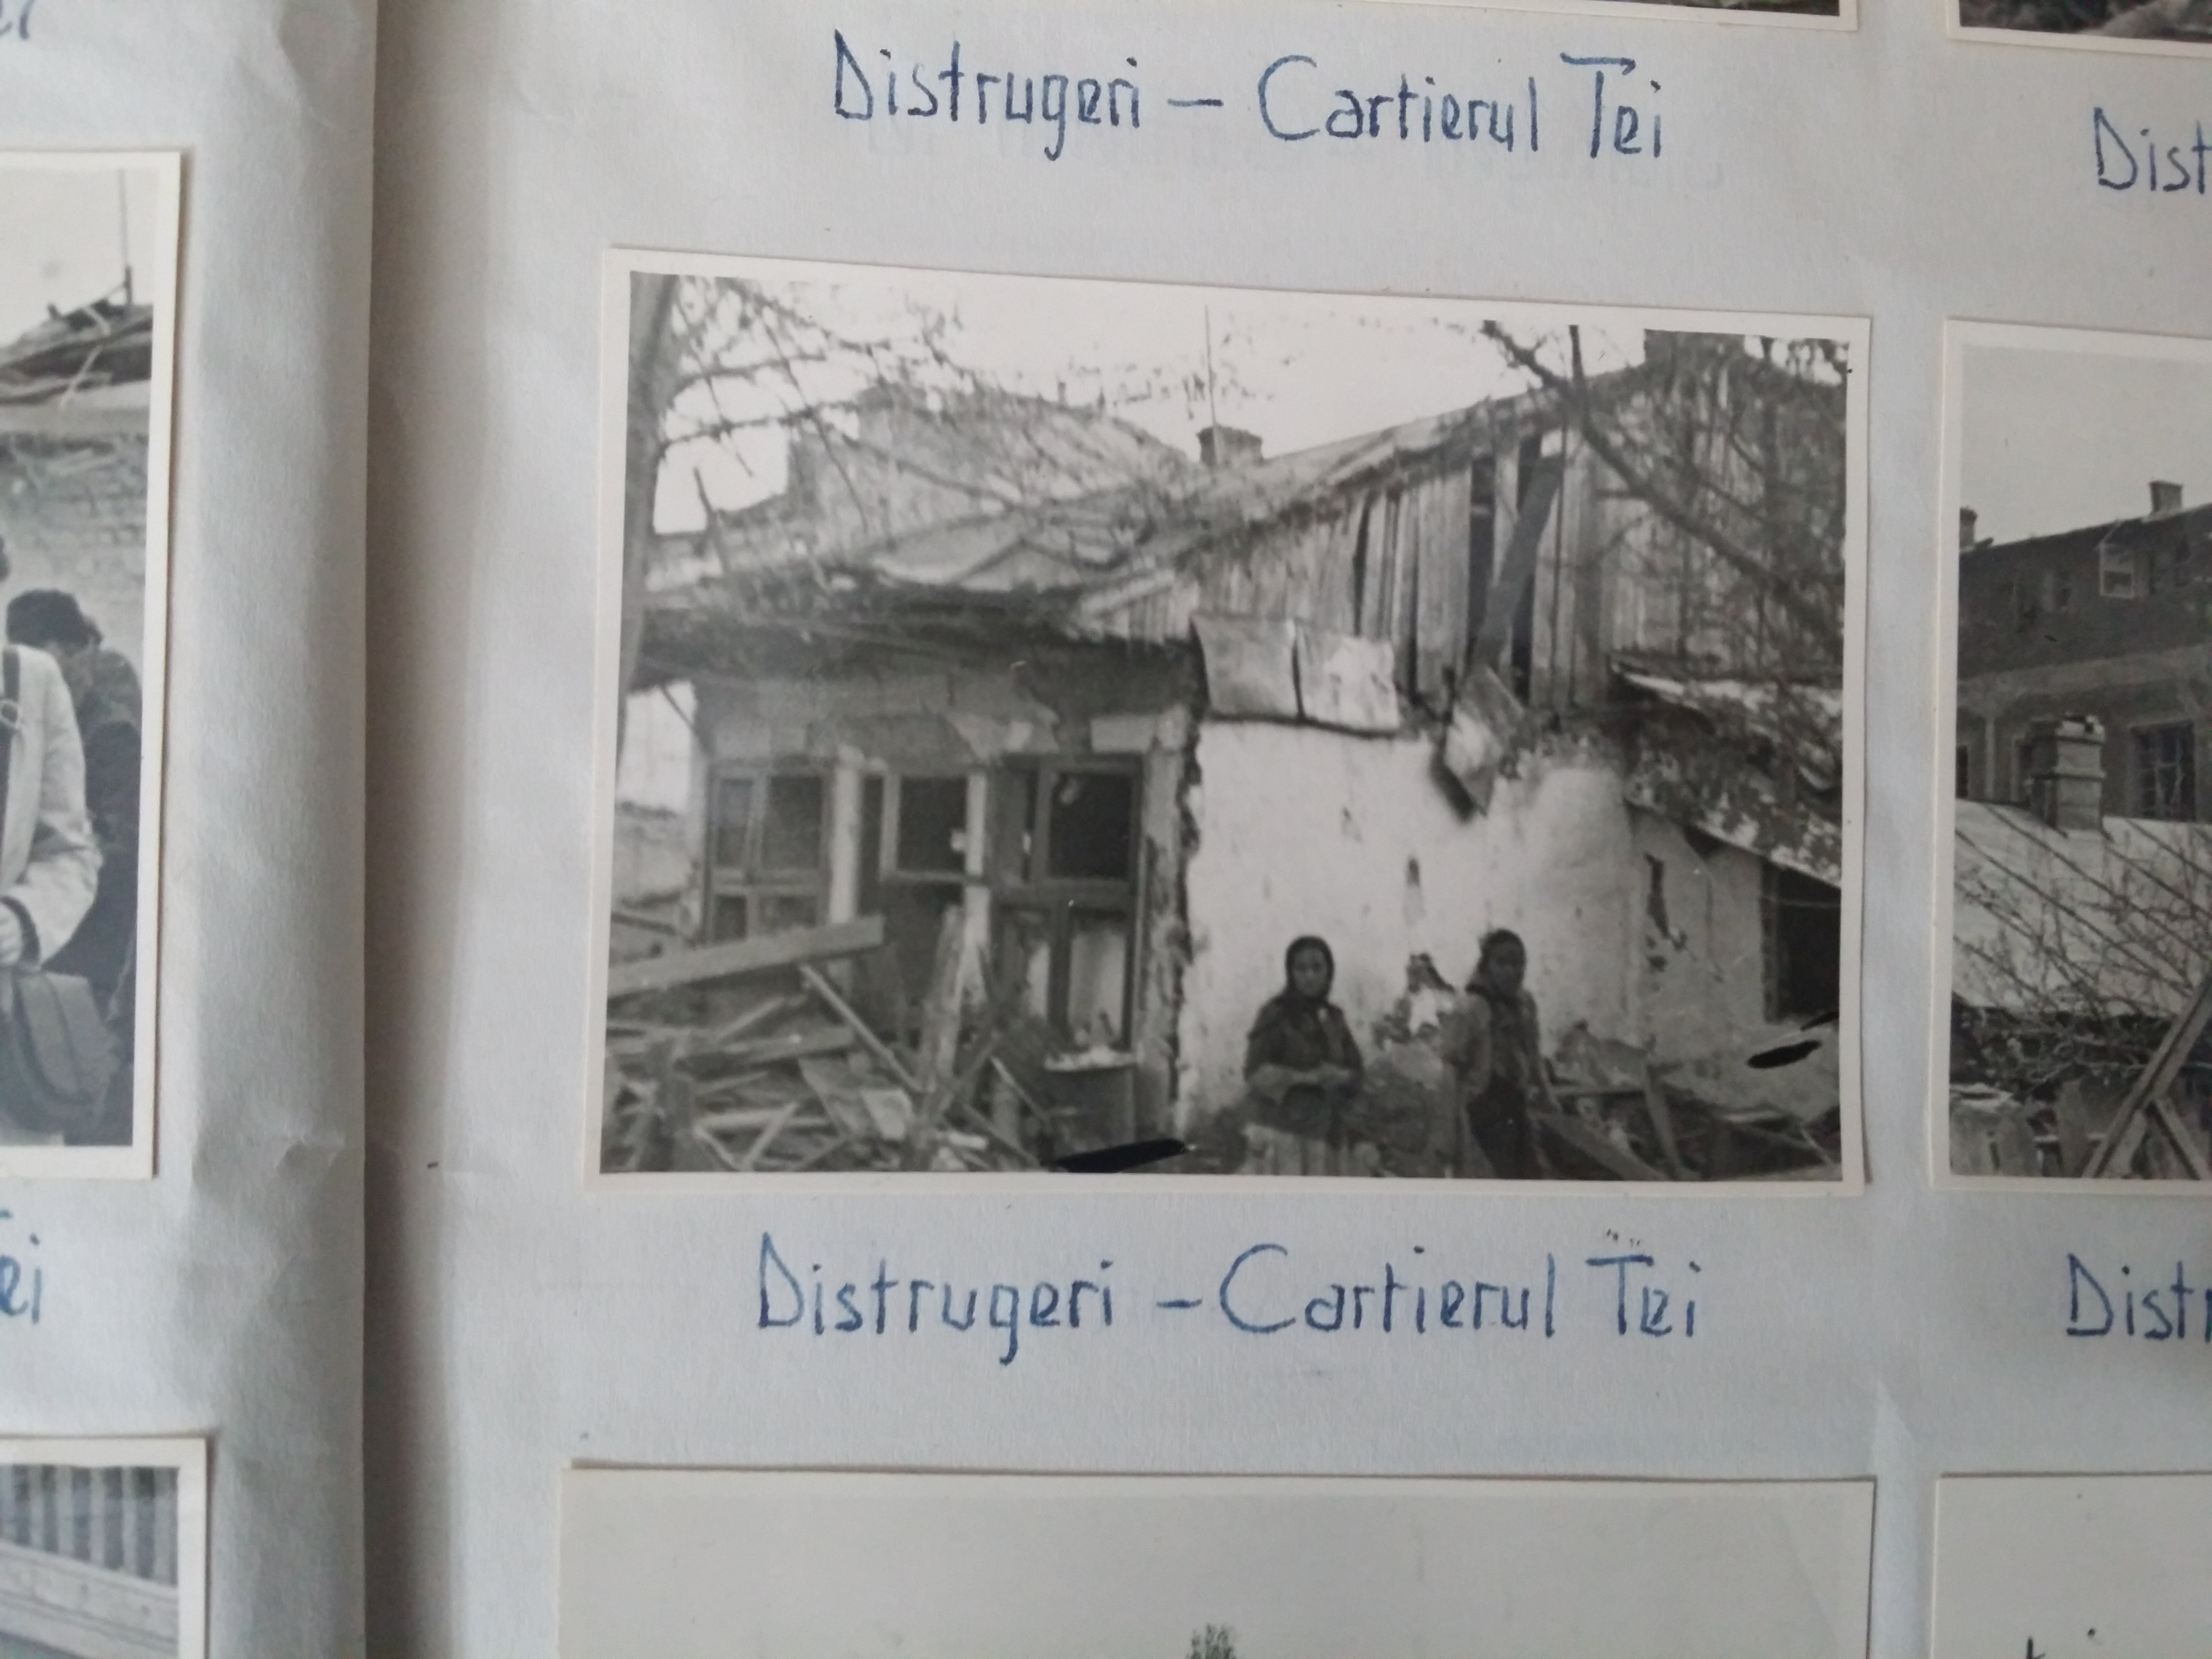 Distrugeri - Cartierul Tei
Distrugeri - Cartierul Tei